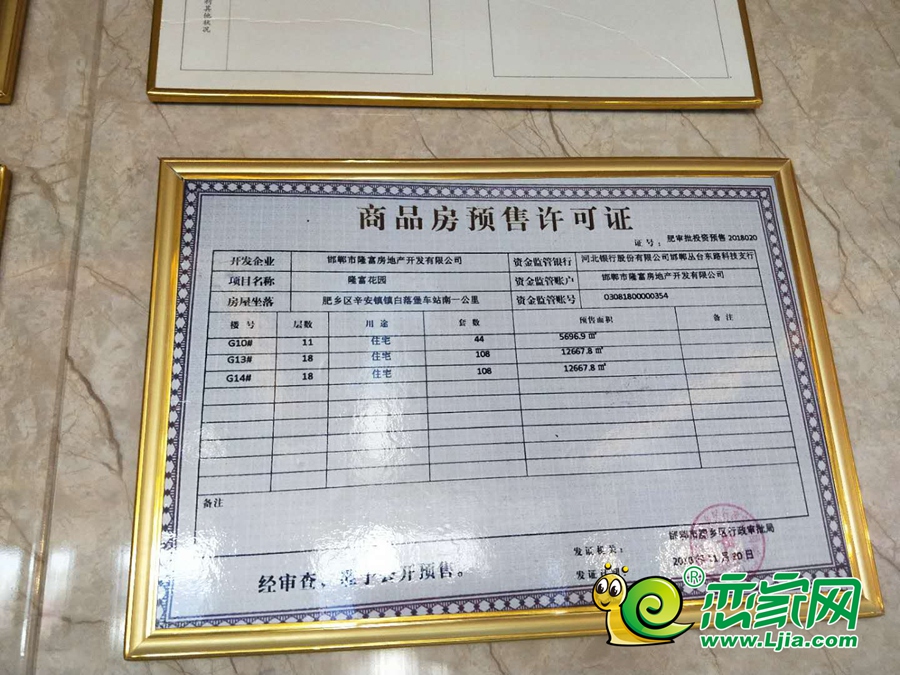 利其他状况
商品房预售许可证
证号：肥审批投资预售2018020
开发企业 邯郸市隆富房地产开发有限公司 资金监管银行 河北银行股份有限公司邯郸丛台东路科技支行
项目名称 隆富花园 资金监管账户 邯郸市隆富房地产开发有限公司
房屋坐落 肥乡区辛安镇镇白落堡车站南一公里 资金监管账号 03081800000354
楼号 层数 用途 套数 预售面积 备注
G10# 11 住宅 44 5696.9㎡
G13# 18 住宅 108 12667.8㎡
G14# 18 住宅 108 12667.8㎡
备注
发证机关： 邯郸市肥乡区行政审批局
发证日期
经审查、准予公开预售。
恋家网
www.Ljia.com